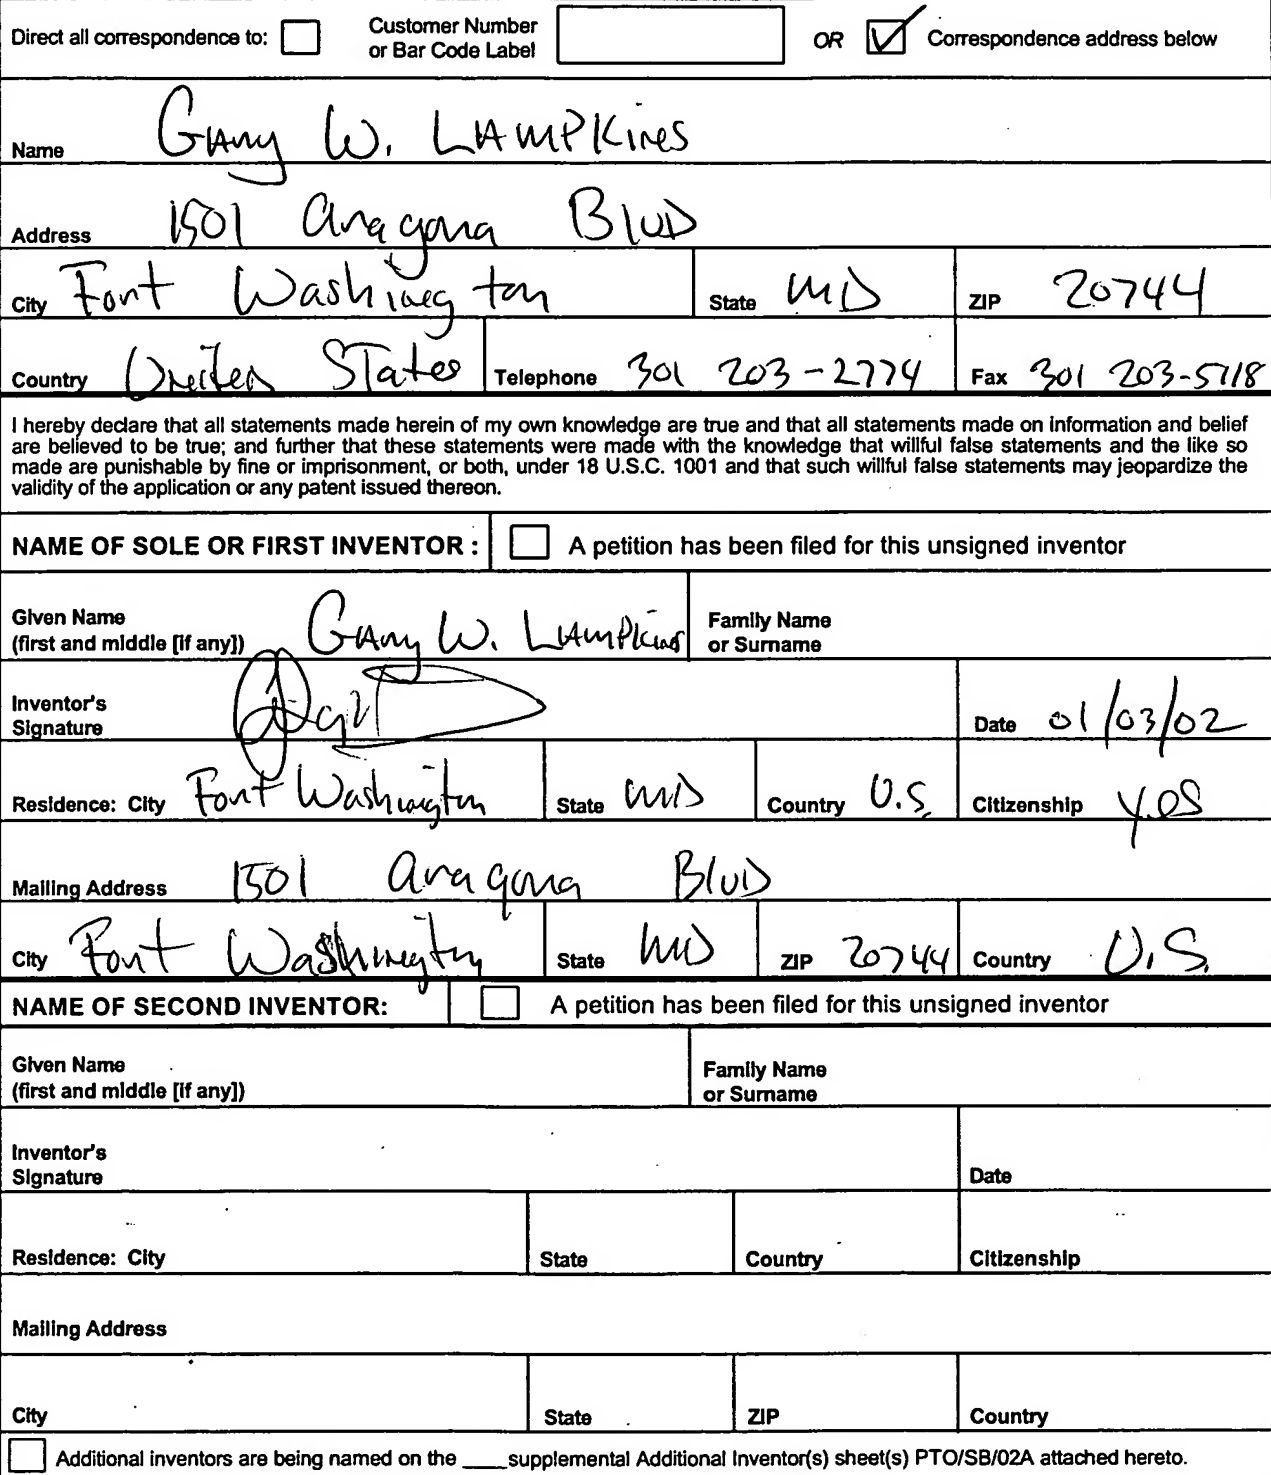 Direct all correspondence to: Customer Number or Bar Code Label OR Correspondence address below
Name Gary W. LAMPKines
Address 1501 Aragona Blvd
City Fort Washington State MD ZIP 20744
Country United States Telephone 301 203-2774 Fax 301 203-5718
I hereby declare that all statements made herein of my own knowledge are true and that all statements made on information and belief
are believed to be true; and further that these statements were made with the knowledge that willful false statements and the like so
made are punishable by fine or imprisonment, or both, under 18 U.S.C. 1001 and that such willful false statements may jeopardize the
validity of the application or any patent issued thereon.
NAME OF SOLE OR FIRST INVENTOR : A petition has been filed for this unsigned inventor
Given Name (first and middle [if any]) Gary W. LAMPKins Family Name or Surname
Inventor's Signature Date 01/03/02
Residence: City Fort Washington State MD Country U.S. Citizenship yes
Mailing Address 1501 Aragona Blvd
City Fort Washington State MD ZIP 20744 Country U.S.
NAME OF SECOND INVENTOR: A petition has been filed for this unsigned inventor
Given Name (first and middle [if any]) Family Name or Surname
Inventor's Signature Date
Residence: City State Country Citizenship
Mailing Address
City State ZIP Country
Additional inventors are being named on the ____supplemental Additional Inventor(s) sheet(s) PTO/SB/02A attached hereto.